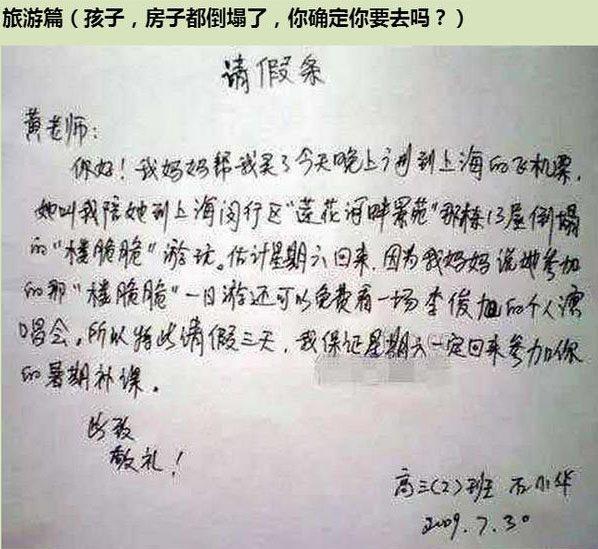 旅游篇（孩子，房子都倒塌了，你确定你要去吗？）
请假条
黄老师：
你好！我妈妈帮我买了今天晚上到上海的飞机票，
她叫我陪她到上海闵行区“莲花河畔景苑”那栋13层倒塌
的“楼脆脆”游玩。估计星期六回来，因为我妈妈说她参加
的那“楼脆脆”一日游还可以免费看一场李俊旭的个人演
唱会。所以特此请假三天，我保证星期六一定回来参加你
的暑期补课。
此致
敬礼！
高三（2）班 石小华
2009.7.30